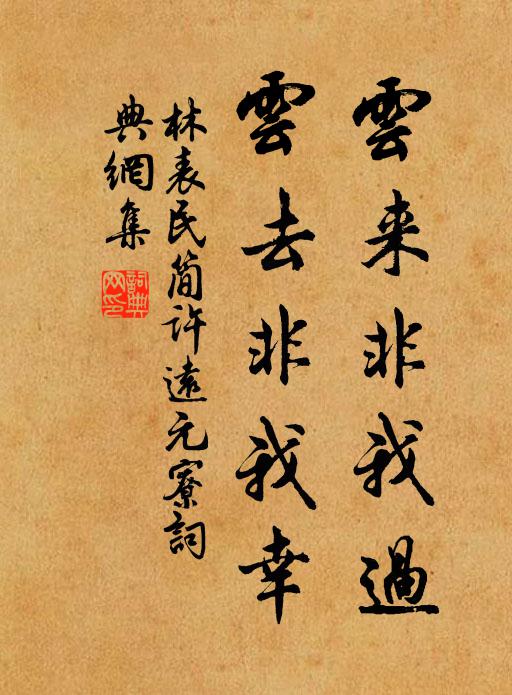 雲来非我過
雲去非我幸
林表民簡許遠元寮詞
典網集
詞典
网印